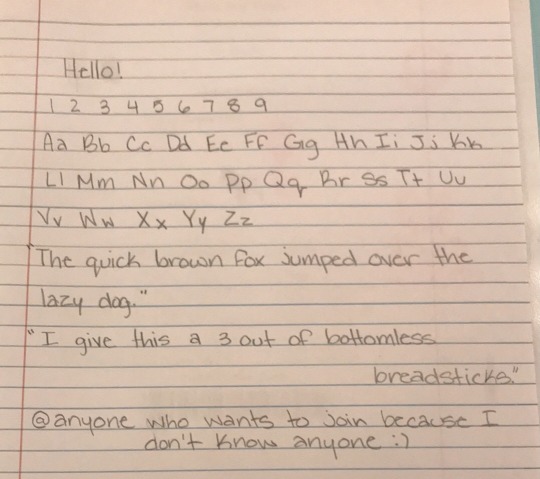 Hello!
1 2 3 4 5 6 7 8 9
Aa Bb Cc Dd Ee Ff Gg Hh Ii Jj Kk
Ll Mm Nn Oo Pp Qq Rr Ss Tt Uu
Vv Ww Xx Yy Zz
"The quick brown fox jumped over the
lazy dog."
"I give this a 3 out of bottomless
breadsticks."
@anyone who wants to join because I
don't know anyone :)